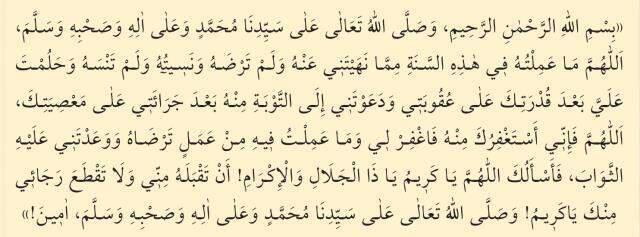 «بِسْمِ اللهِ الرَّحْمٰنِ الرَّحِيمِ، وَصَلَّى اللهُ تَعَالٰى عَلٰى سَيِّدِنَا مُحَمَّدٍ وَعَلٰى اٰلِهِ وَصَحْبِهِ وَسَلَّمَ،
اَللّٰهُمَّ مَا عَمِلْتُهُ فِي هٰذِهِ السَّنَةِ مِمَّا نَهَيْتَنِي عَنْهُ وَلَمْ تَرْضَهُ وَنَسِيتُهُ وَلَمْ تَنْسَهُ وَحَلُمْتَ
عَلَيَّ بَعْدَ قُدْرَتِكَ عَلٰى عُقُوبَتِي وَدَعَوْتَنِي إِلَى التَّوْبَةِ مِنْهُ بَعْدَ جَرَائَتِي عَلٰى مَعْصِيَتِكَ،
اَللّٰهُمَّ فَإِنِّي أَسْتَغْفِرُكَ مِنْهُ فَاغْفِرْ لِي وَمَا عَمِلْتُ فِيهِ مِنْ عَمَلٍ تَرْضَاهُ وَوَعَدْتَنِي عَلَيْهِ
الثَّوَابَ، فَأَسْأَلُكَ اللّٰهُمَّ يَا كَرِيمُ يَا ذَا الْجَلَالِ وَالْإِكْرَامِ! أَنْ تَقْبَلَهُ مِنِّي وَلَا تَقْطَعَ رَجَائِي
مِنْكَ يَاكَرِيمُ! وَصَلَّى اللهُ تَعَالٰى عَلٰى سَيِّدِنَا مُحَمَّدٍ وَعَلٰى اٰلِهِ وَصَحْبِهِ وَسَلَّمَ، اٰمِينَ!»